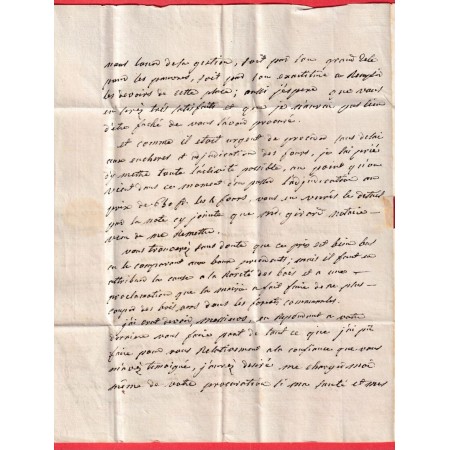 nous louer de sa gestion, soit par son grand zele
pour les pauvres, soit par son exactitude a Remplir
les devoirs de cette place; aussi j'espere que vous
en serez très satisfaits et que je n'aurai pas lieu
d'etre faché de vous l'avoir procuré.
et comme il etoit urgent de proceder sans delai
aux encheres et adjudication des fours, je l'ai prié
de mettre toute l'activité possible, au point qu'on
vient dans ce moment d'en passer l'adjudication au
prix de 630 fr. les fours, vous en verrés le détail
par la note cy jointe que mr girard notaire
vien de me Remettre.
vous trouverez sans doute que ce prix est bien bas
en le comparant aux baux précédents; mais il faut en
attribuer la cause a la Rareté des bois et a une
proclamation que la mairie a fait faire de ne plus
couper des bois dans les forets communales.
j'ai cru devoir, Messieurs, en Repondant a votre
derniere vous faire part de tout ce que j'ai pu
faire pour vous Relativement a la confiance que vous
m'avez temoigné, j'aurois desiré me charger moi
même de votre procuration si ma santé et mes